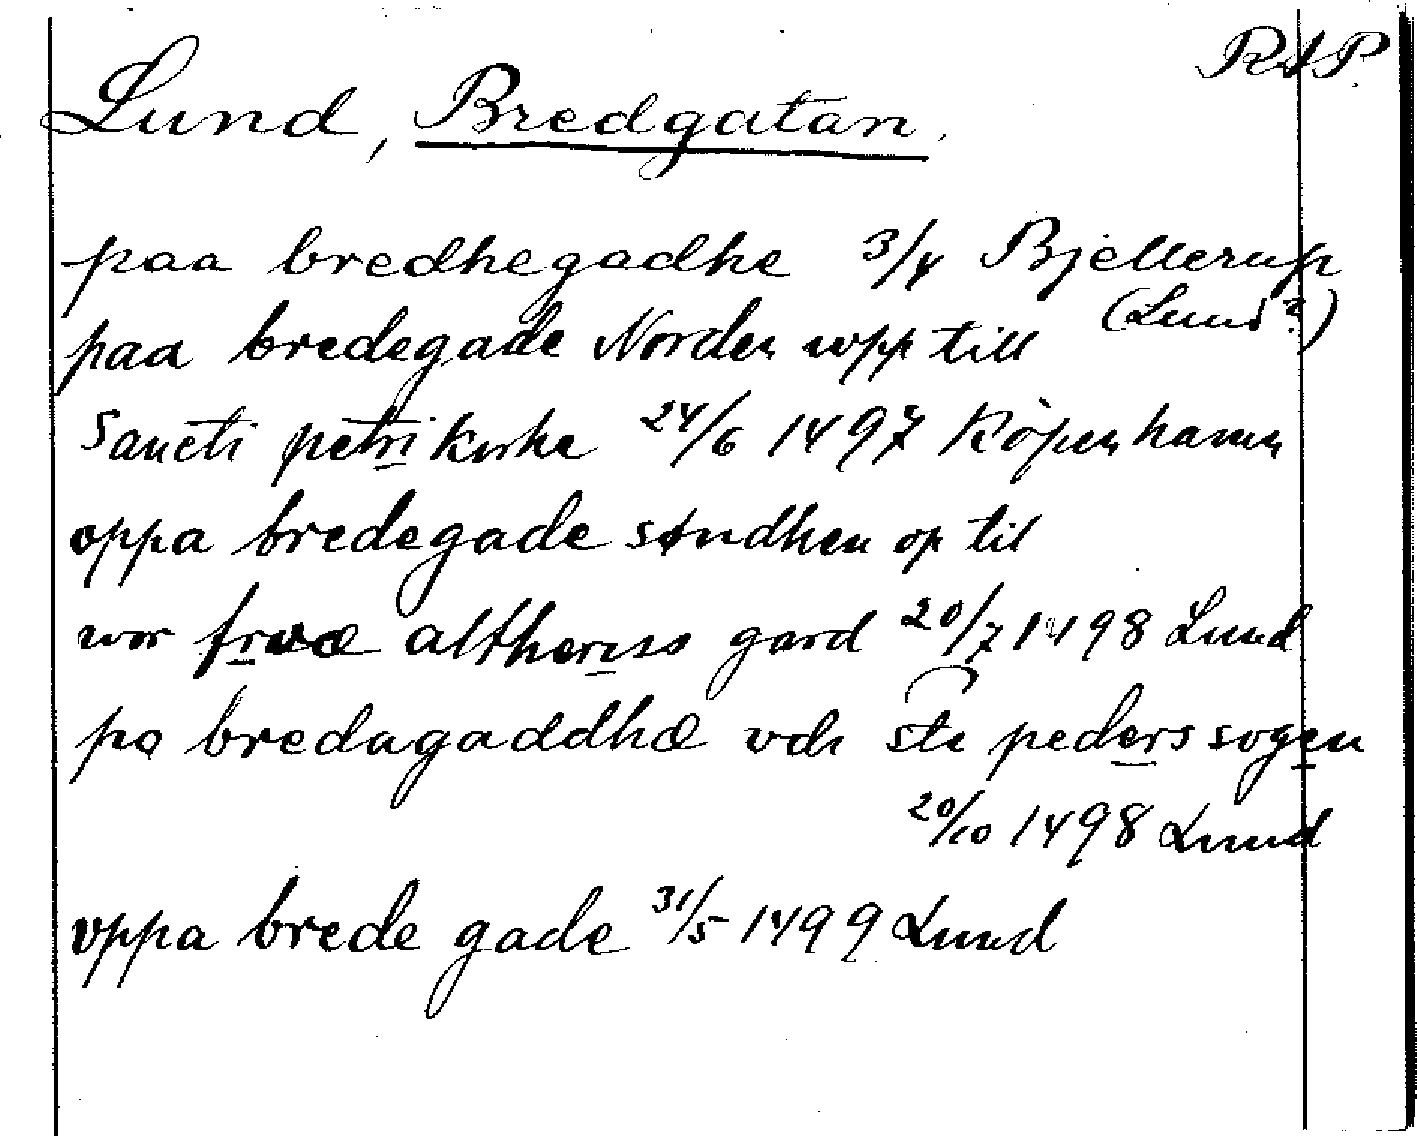 RAP.
Lund, Bredgatan.
paa bredhegadhe 3/4 Bjellerup
(Lund?)
paa bredegade Norden wpp till
Sancti petri kirke 24/6 1497 Köpenhamn
oppa bredegade søndhen op til
wor frvæ altheriss gard 20/7 1498 Lund
pa bredagaddhæ vdi sti peders sogen
20/10 1498 Lund
vppa brede gade 31/5 1499 Lund